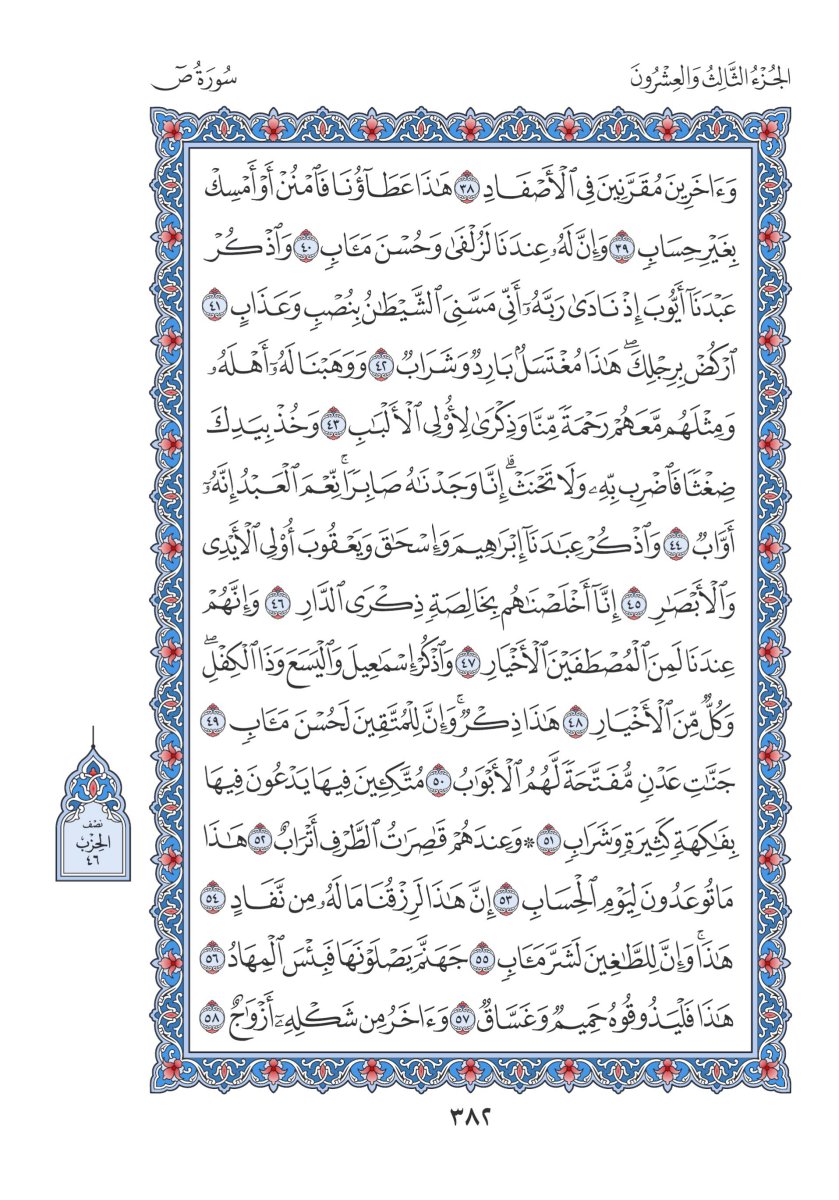 الجُزْءُ الثَّالِثُ وَالعِشْرُونَ
سُورَةُ صٓ
وَءَاخَرِينَ مُقَرَّنِينَ فِي ٱلْأَصْفَادِ ٣٨ هَٰذَا عَطَآؤُنَا فَٱمْنُنْ أَوْ أَمْسِكْ
بِغَيْرِ حِسَابٍ ٣٩ وَإِنَّ لَهُۥ عِندَنَا لَزُلْفَىٰ وَحُسْنَ مَـَٔابٍ ٤٠ وَٱذْكُرْ
عَبْدَنَآ أَيُّوبَ إِذْ نَادَىٰ رَبَّهُۥٓ أَنِّي مَسَّنِيَ ٱلشَّيْطَٰنُ بِنُصْبٍ وَعَذَابٍ ٤١
ٱرْكُضْ بِرِجْلِكَۖ هَٰذَا مُغْتَسَلُۢ بَارِدٌ وَشَرَابٌ ٤٢ وَوَهَبْنَا لَهُۥٓ أَهْلَهُۥ
وَمِثْلَهُم مَّعَهُمْ رَحْمَةً مِّنَّا وَذِكْرَىٰ لِأُوْلِي ٱلْأَلْبَٰبِ ٤٣ وَخُذْ بِيَدِكَ
ضِغْثًا فَٱضْرِب بِّهِۦ وَلَا تَحْنَثْۗ إِنَّا وَجَدْنَٰهُ صَابِرًاۚ نِّعْمَ ٱلْعَبْدُ إِنَّهُۥٓ
أَوَّابٌ ٤٤ وَٱذْكُرْ عِبَٰدَنَآ إِبْرَٰهِيمَ وَإِسْحَٰقَ وَيَعْقُوبَ أُوْلِي ٱلْأَيْدِي
وَٱلْأَبْصَٰرِ ٤٥ إِنَّآ أَخْلَصْنَٰهُم بِخَالِصَةٍ ذِكْرَى ٱلدَّارِ ٤٦ وَإِنَّهُمْ
عِندَنَا لَمِنَ ٱلْمُصْطَفَيْنَ ٱلْأَخْيَارِ ٤٧ وَٱذْكُرْ إِسْمَٰعِيلَ وَٱلْيَسَعَ وَذَا ٱلْكِفْلِۖ
وَكُلٌّ مِّنَ ٱلْأَخْيَارِ ٤٨ هَٰذَا ذِكْرٌۚ وَإِنَّ لِلْمُتَّقِينَ لَحُسْنَ مَـَٔابٍ ٤٩
جَنَّٰتِ عَدْنٍ مُّفَتَّحَةً لَّهُمُ ٱلْأَبْوَٰبُ ٥٠ مُتَّكِـِٔينَ فِيهَا يَدْعُونَ فِيهَا
بِفَٰكِهَةٍ كَثِيرَةٍ وَشَرَابٍ ٥١ ۞وَعِندَهُمْ قَٰصِرَٰتُ ٱلطَّرْفِ أَتْرَابٌ ٥٢ هَٰذَا
مَا تُوعَدُونَ لِيَوْمِ ٱلْحِسَابِ ٥٣ إِنَّ هَٰذَا لَرِزْقُنَا مَا لَهُۥ مِن نَّفَادٍ ٥٤
هَٰذَاۚ وَإِنَّ لِلطَّٰغِينَ لَشَرَّ مَـَٔابٍ ٥٥ جَهَنَّمَ يَصْلَوْنَهَا فَبِئْسَ ٱلْمِهَادُ ٥٦
هَٰذَا فَلْيَذُوقُوهُ حَمِيمٌ وَغَسَّاقٌ ٥٧ وَءَاخَرُ مِن شَكْلِهِۦٓ أَزْوَٰجٌ ٥٨
نصْف
الحِزْبُ
٤٦
٣٨٢